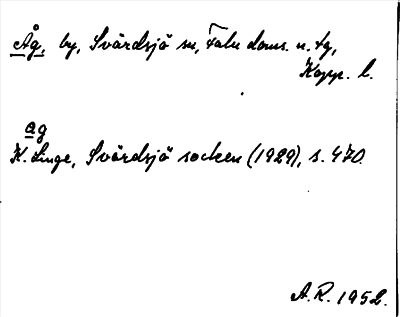 Åg, by, Svärdsjö sn, Falu doms. n. tg,
Kopp. l.
ag
K. Linge, Svärdsjö socken (1929), s. 470.
A.R. 1952.